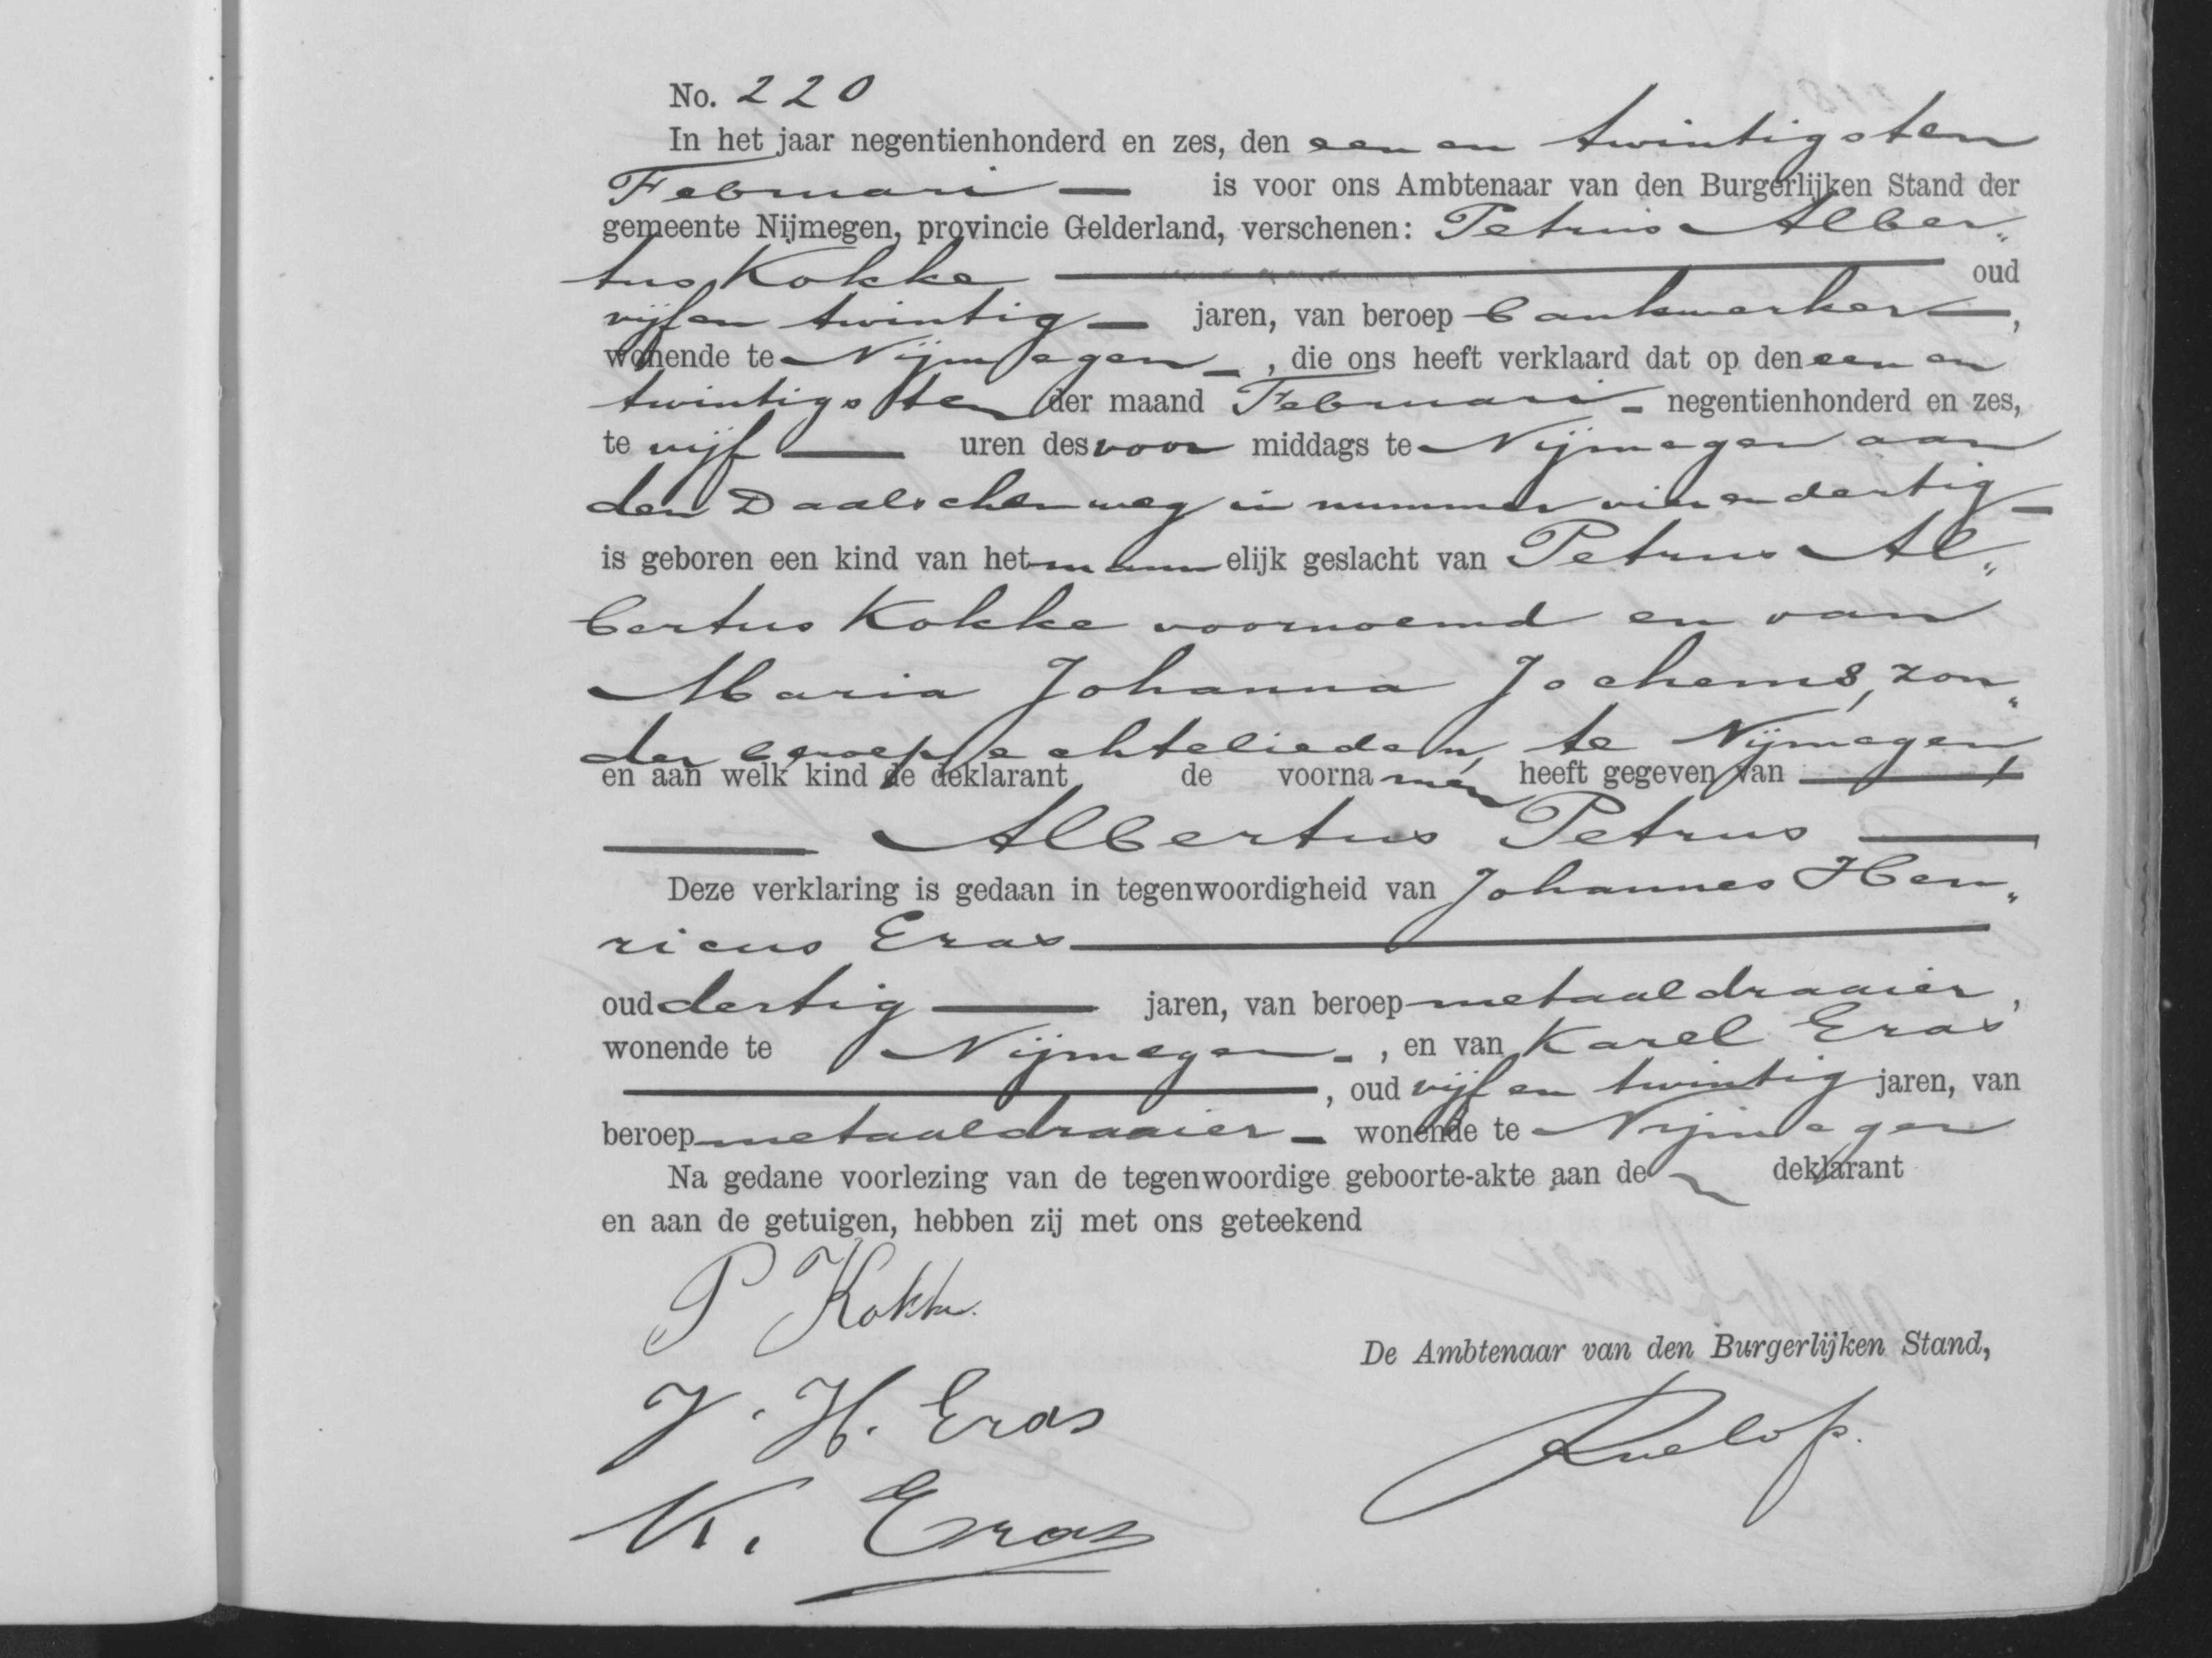 No. 220
In het jaar negentienhonderd en zes, den een en twintigsten
Februari — is voor ons Ambtenaar van den Burgerlijken Stand der
gemeente Nijmegen, provincie Gelderland, verschenen: Petrus Alber„
tus Kokke — oud
vijf en twintig — jaren, van beroep bankwerker —,
wonende te Nijmegen —, die ons heeft verklaard dat op den een en
twintigsten der maand Februari — negentienhonderd en zes,
te vijf — uren des voor middags te Nijmegen aan
den Daalschenweg in nummer vier en dertig —
is geboren een kind van het mannelijk geslacht van Petrus Al„
bertus Kokke voornoemd en van
Maria Johanna Jochems, zon„
der beroep, echtelieden, te Nijmegen,
en aan welk kind de deklarant de voornamen heeft gegeven van —
— Albertus Petrus —
Deze verklaring is gedaan in tegenwoordigheid van Johannes Hen„
ricus Eras —
oud dertig — jaren, van beroep metaaldraaier,
wonende te Nijmegen —, en van Karel Eras
—, oud vijf en twintig jaren, van
beroep metaaldraaier — wonende te Nijmegen
Na gedane voorlezing van de tegenwoordige geboorte-akte aan de deklarant
en aan de getuigen, hebben zij met ons geteekend
P Kokke.
De Ambtenaar van den Burgerlijken Stand,
J. H. Eras
K. Eras